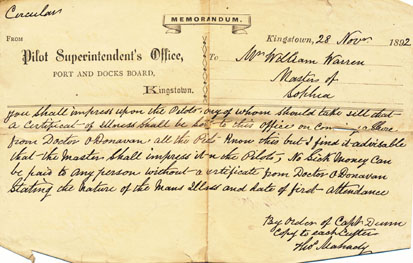 Circular
MEMORANDUM.
FROM
Pilot Superintendent's Office,
PORT AND DOCKS BOARD,
Kingstown.
Kingstown, 28 Novr 1892
To Mr William Warren
Master of
Sophia
You Shall impress upon the Pilots any of whom should take sill that
a Certificate of Illness Shall be to this Office on Shore
from Doctor O'Donavan all the Pilots Know this but I find it advisable
that the Master Shall impress it on the Pilots, No Sick Money Can
be paid to any person without a Certificate from Doctor O'Donavan
Stating the nature of the Mans Illness and date of first attendance
By Order of Capt
Copy to each Cutter
Thos Mahady